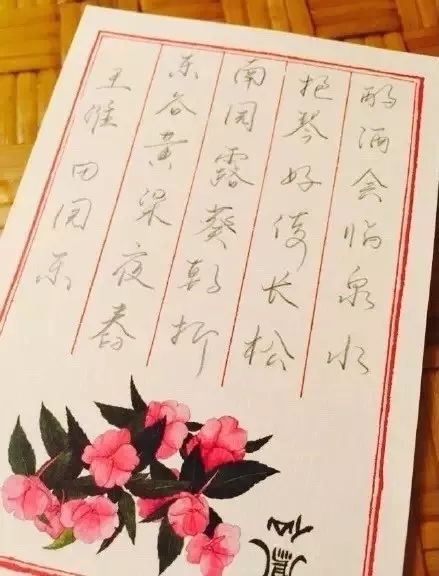 酌酒会临泉水
抱琴好倚长松
南园露葵朝折
东谷黄粱夜舂
王维 田园乐